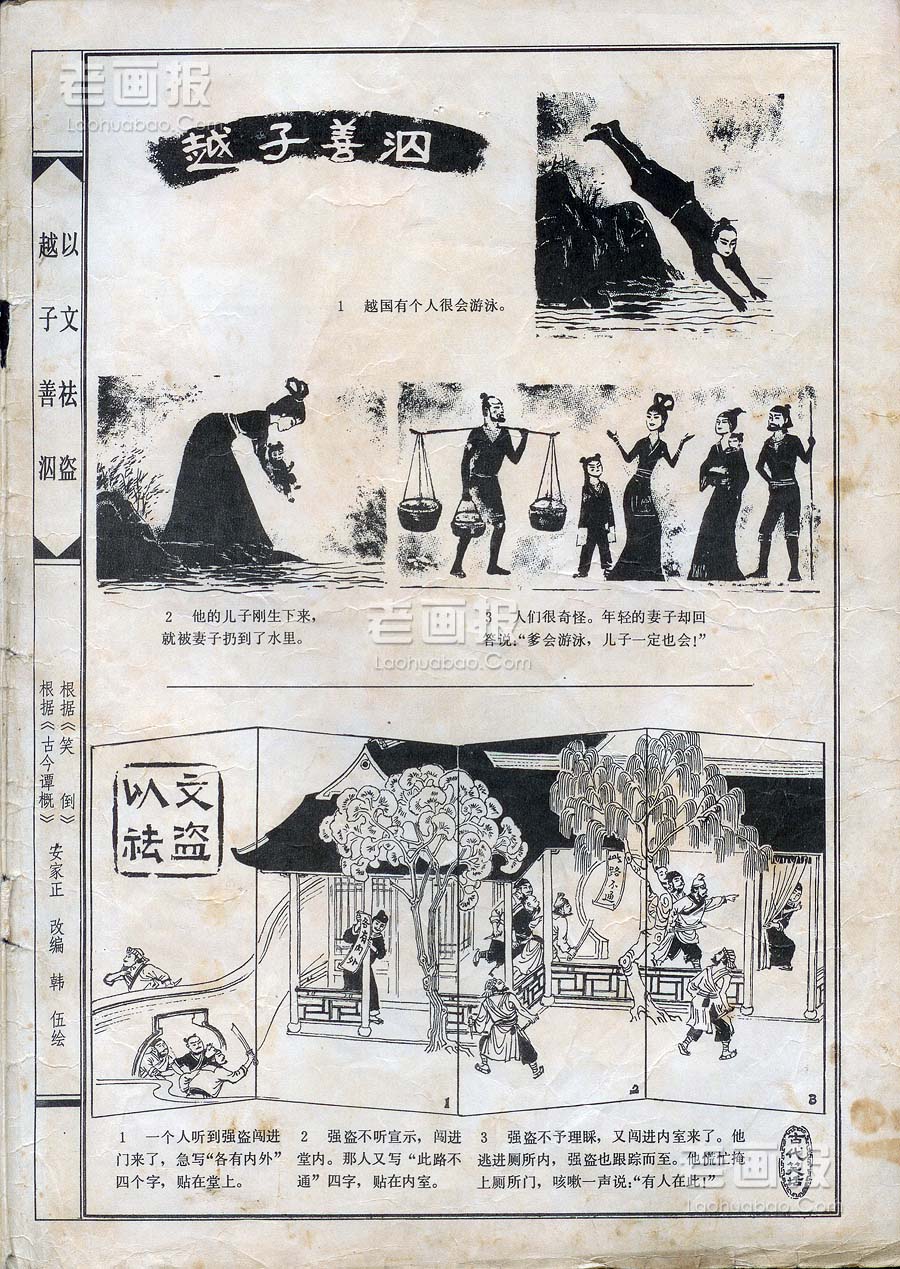 老画报
Laohuabao.Com
越子善泅
以文祛盗
越子善泅
1 越国有个人很会游泳。
2 他的儿子刚生下来，
就被妻子扔到了水里。
3 人们很奇怪。年轻的妻子却回
答说：“爹会游泳，儿子一定也会！”
老画报
Laohuabao.Com
根据《笑 倒》
根据《古今谭概》
安家正 改编 韩 伍绘
以文
祛盗
各有内外
此路不通
1
2
3
1 一个人听到强盗闯进
门来了，急写“各有内外”
四个字，贴在堂上。
2 强盗不听宣示，闯进
堂内。那人又写“此路不
通”四字，贴在内室。
3 强盗不予理睬，又闯进内室来了。他
逃进厕所内，强盗也跟踪而至。他慌忙掩
上厕所门，咳嗽一声说：“有人在此！”
古代笑话
老画报
Laohuabao.Com